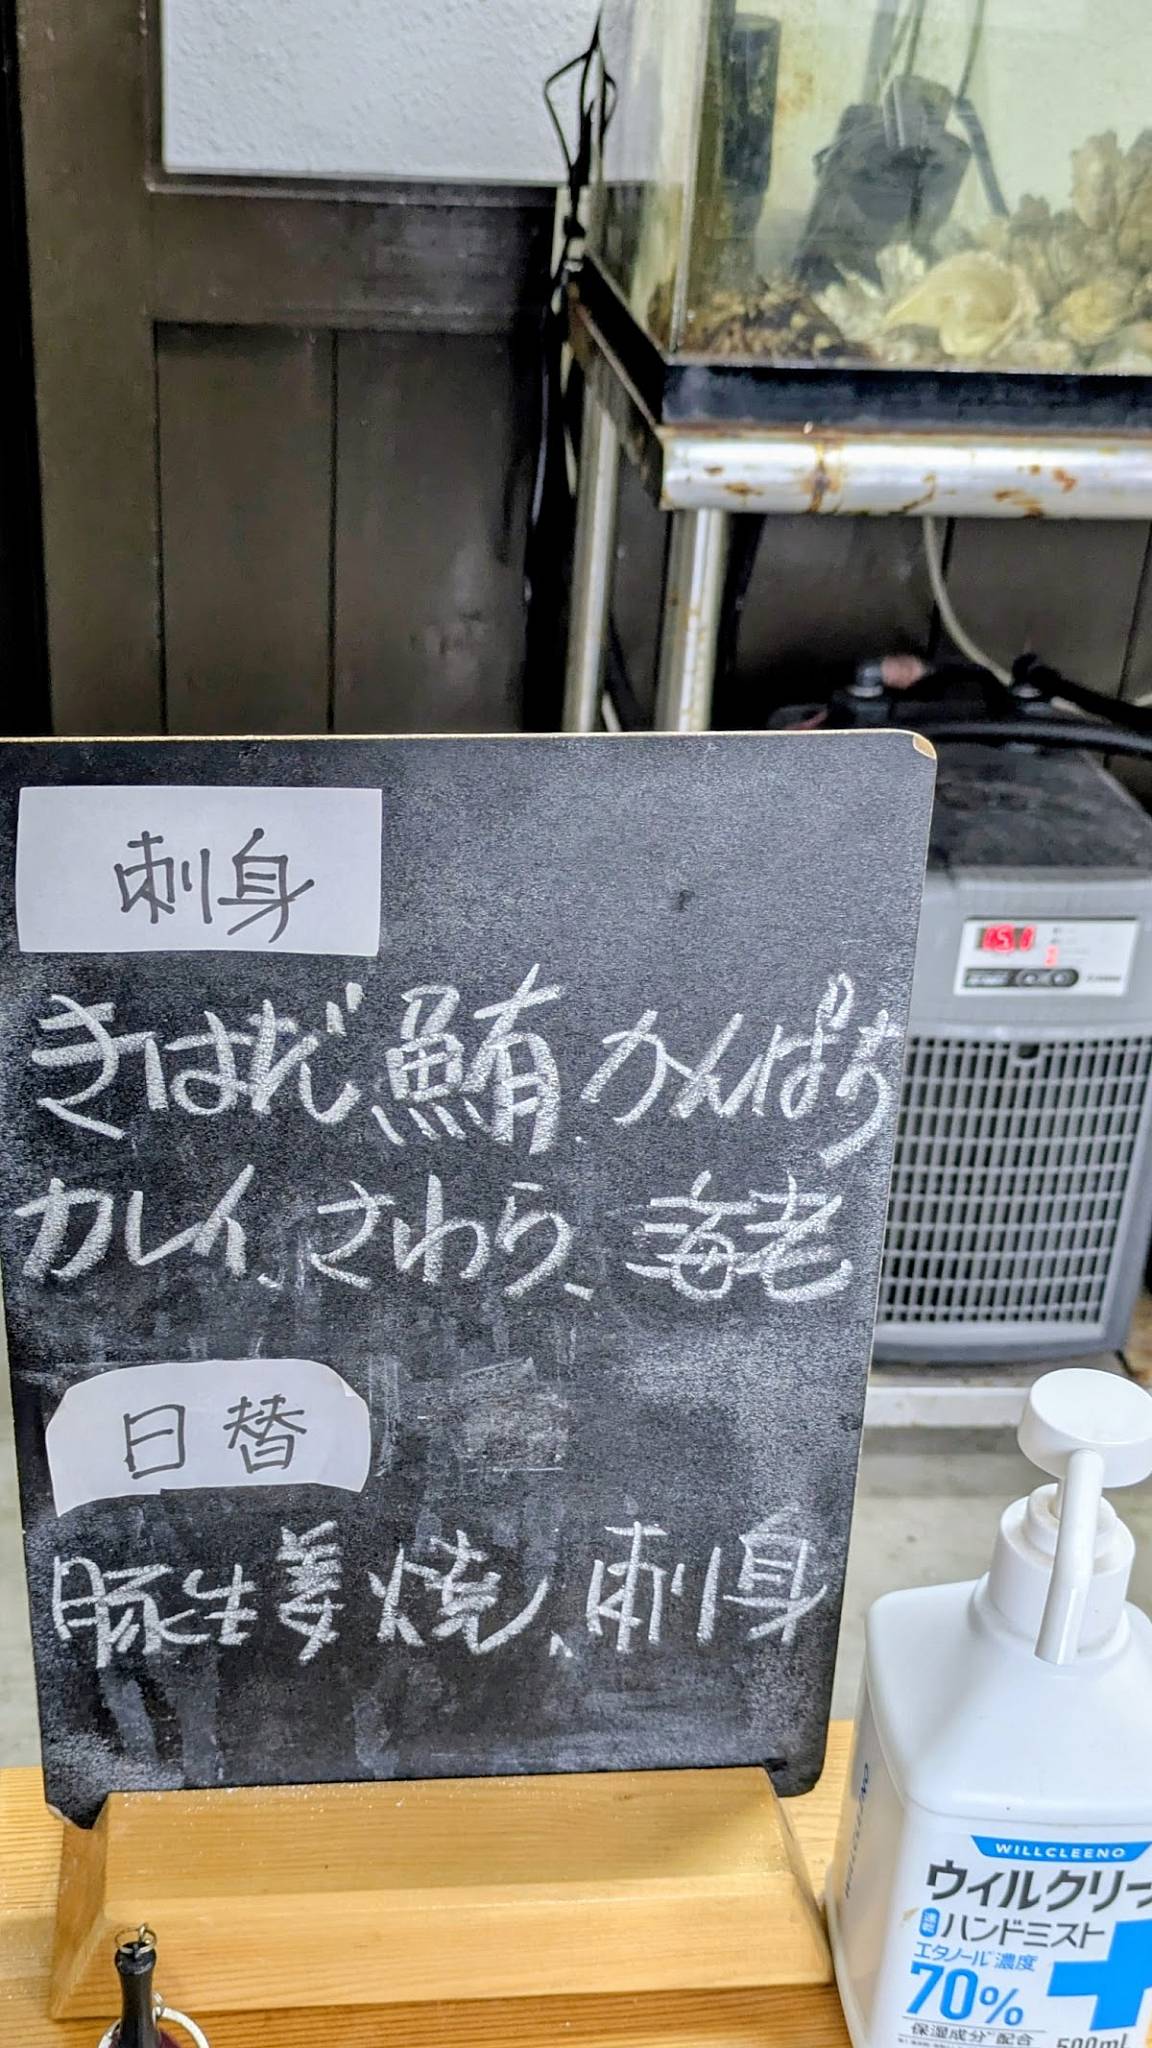 刺身
きはだ鮪 かんぱち
カレイ、さわら、海老
日替
豚生姜焼、刺身
151
WILLCLEENO
ウィルクリー
速乾 ハンドミスト
エタノール濃度
70%
保湿成分 配合
500ml